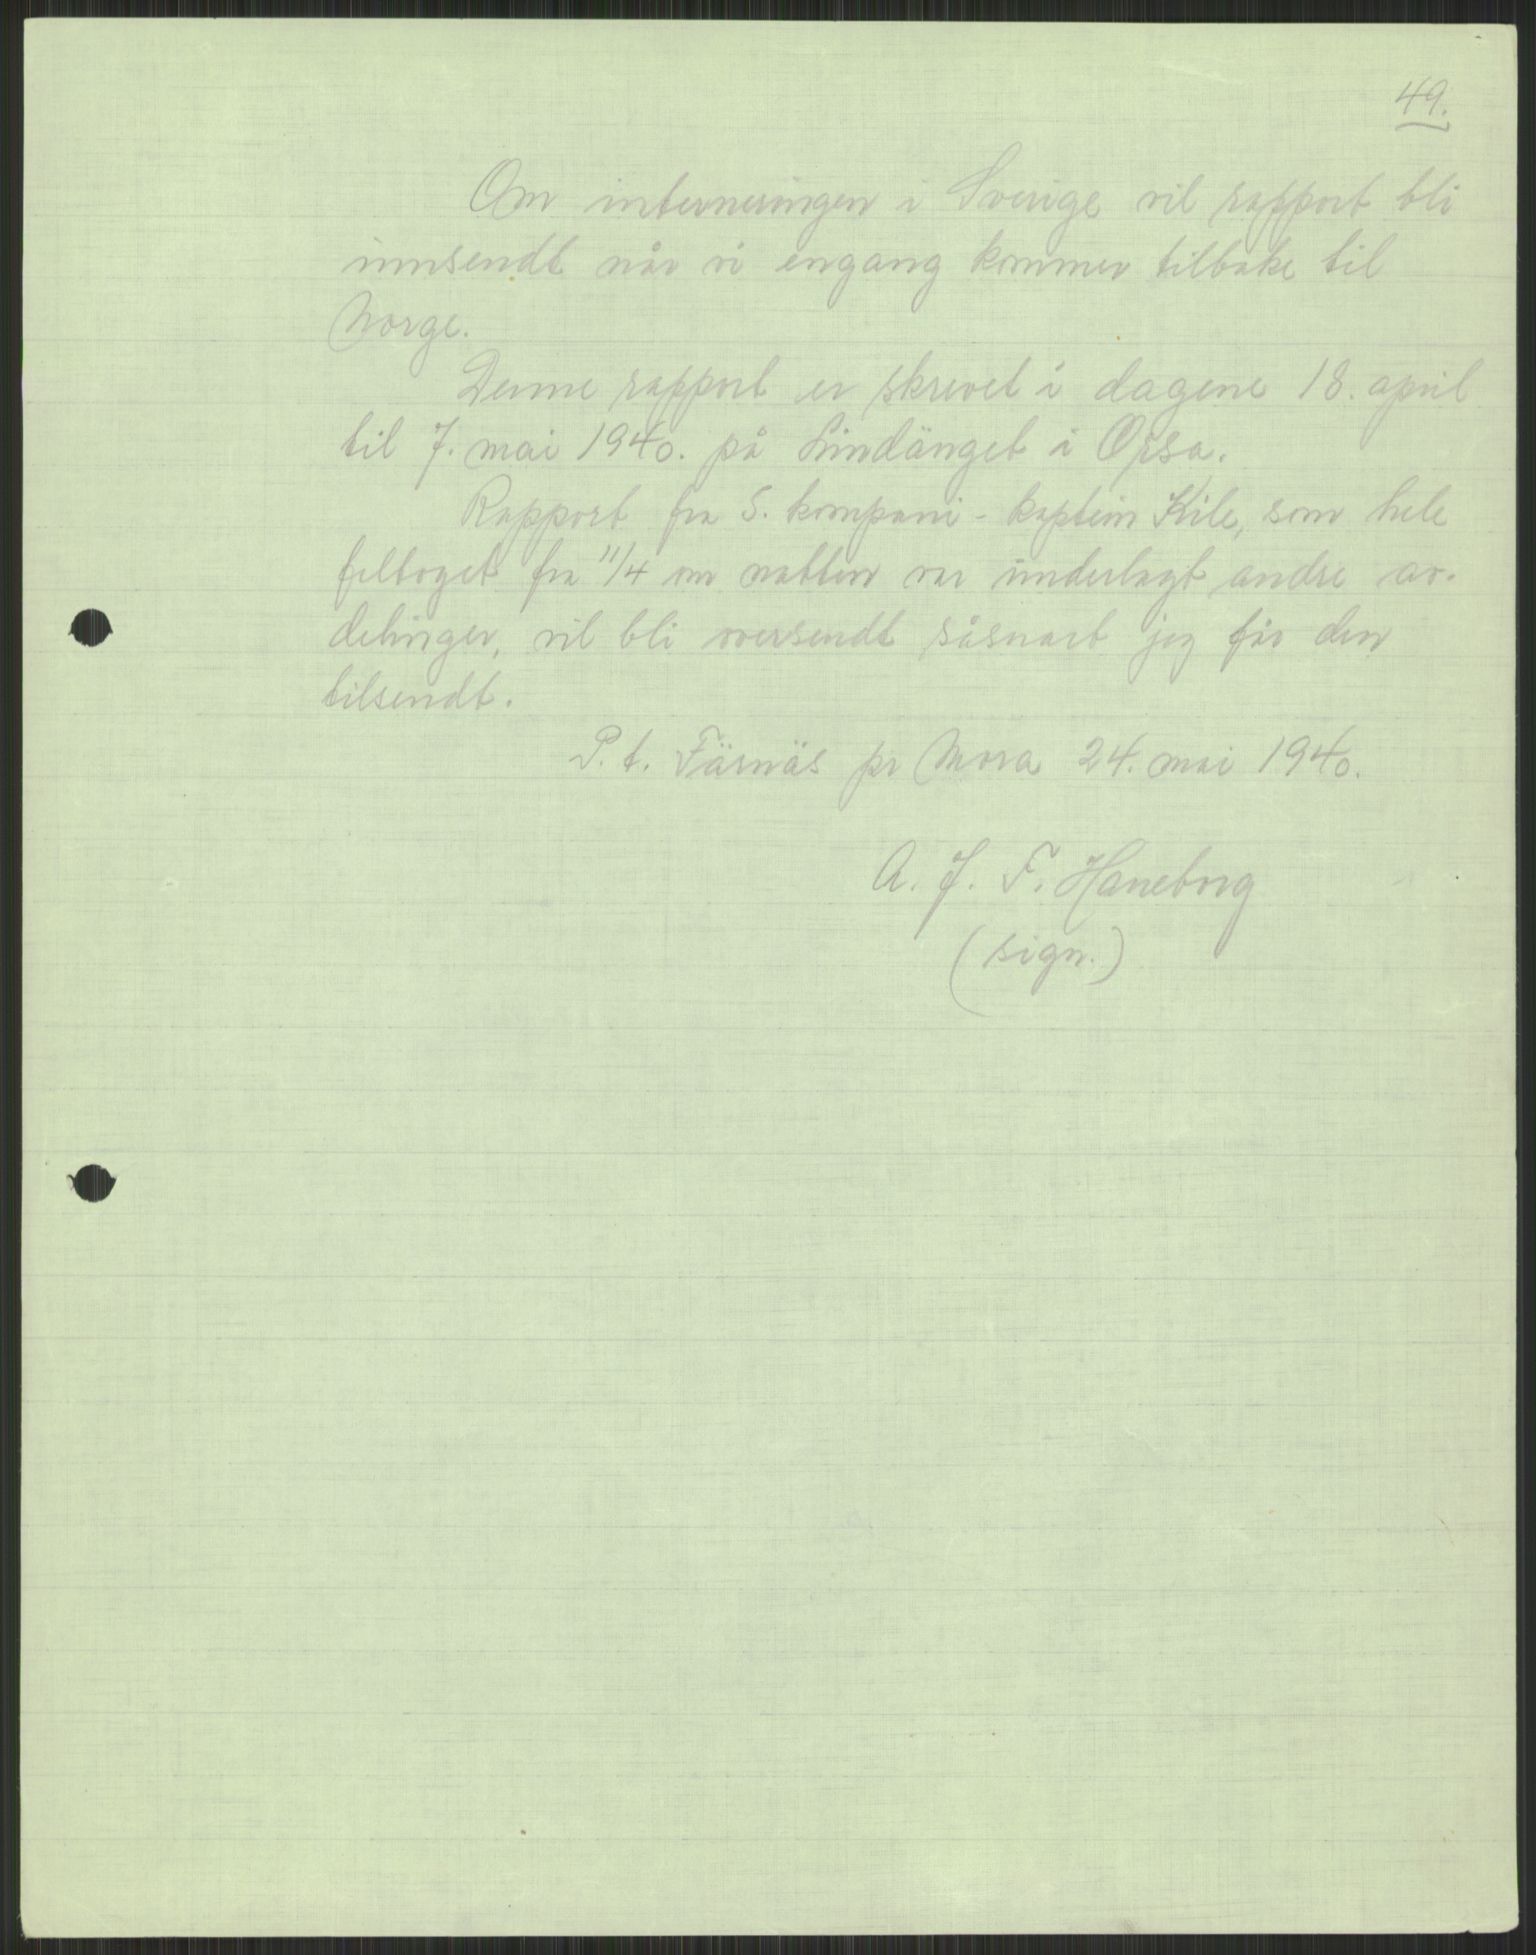 49.
Om interneringen i Sverige vil rapport bli
innsendt når vi engang kommer tilbake til
Norge.
Denne rapport er skrevet i dagene 18. april
til 7. mai 1940. på Lindänget i Orsa.
Rapport fra 5. kompani - kaptein Kile, som hele
felttoget fra 11/4 om natten var underlagt andre av-
delinger, vil bli oversendt såsnart jeg får den
tilsendt.
P. t. Färnäs pr Mora 24. mai 1940.
A. J. F. Haneborg
(sign.)